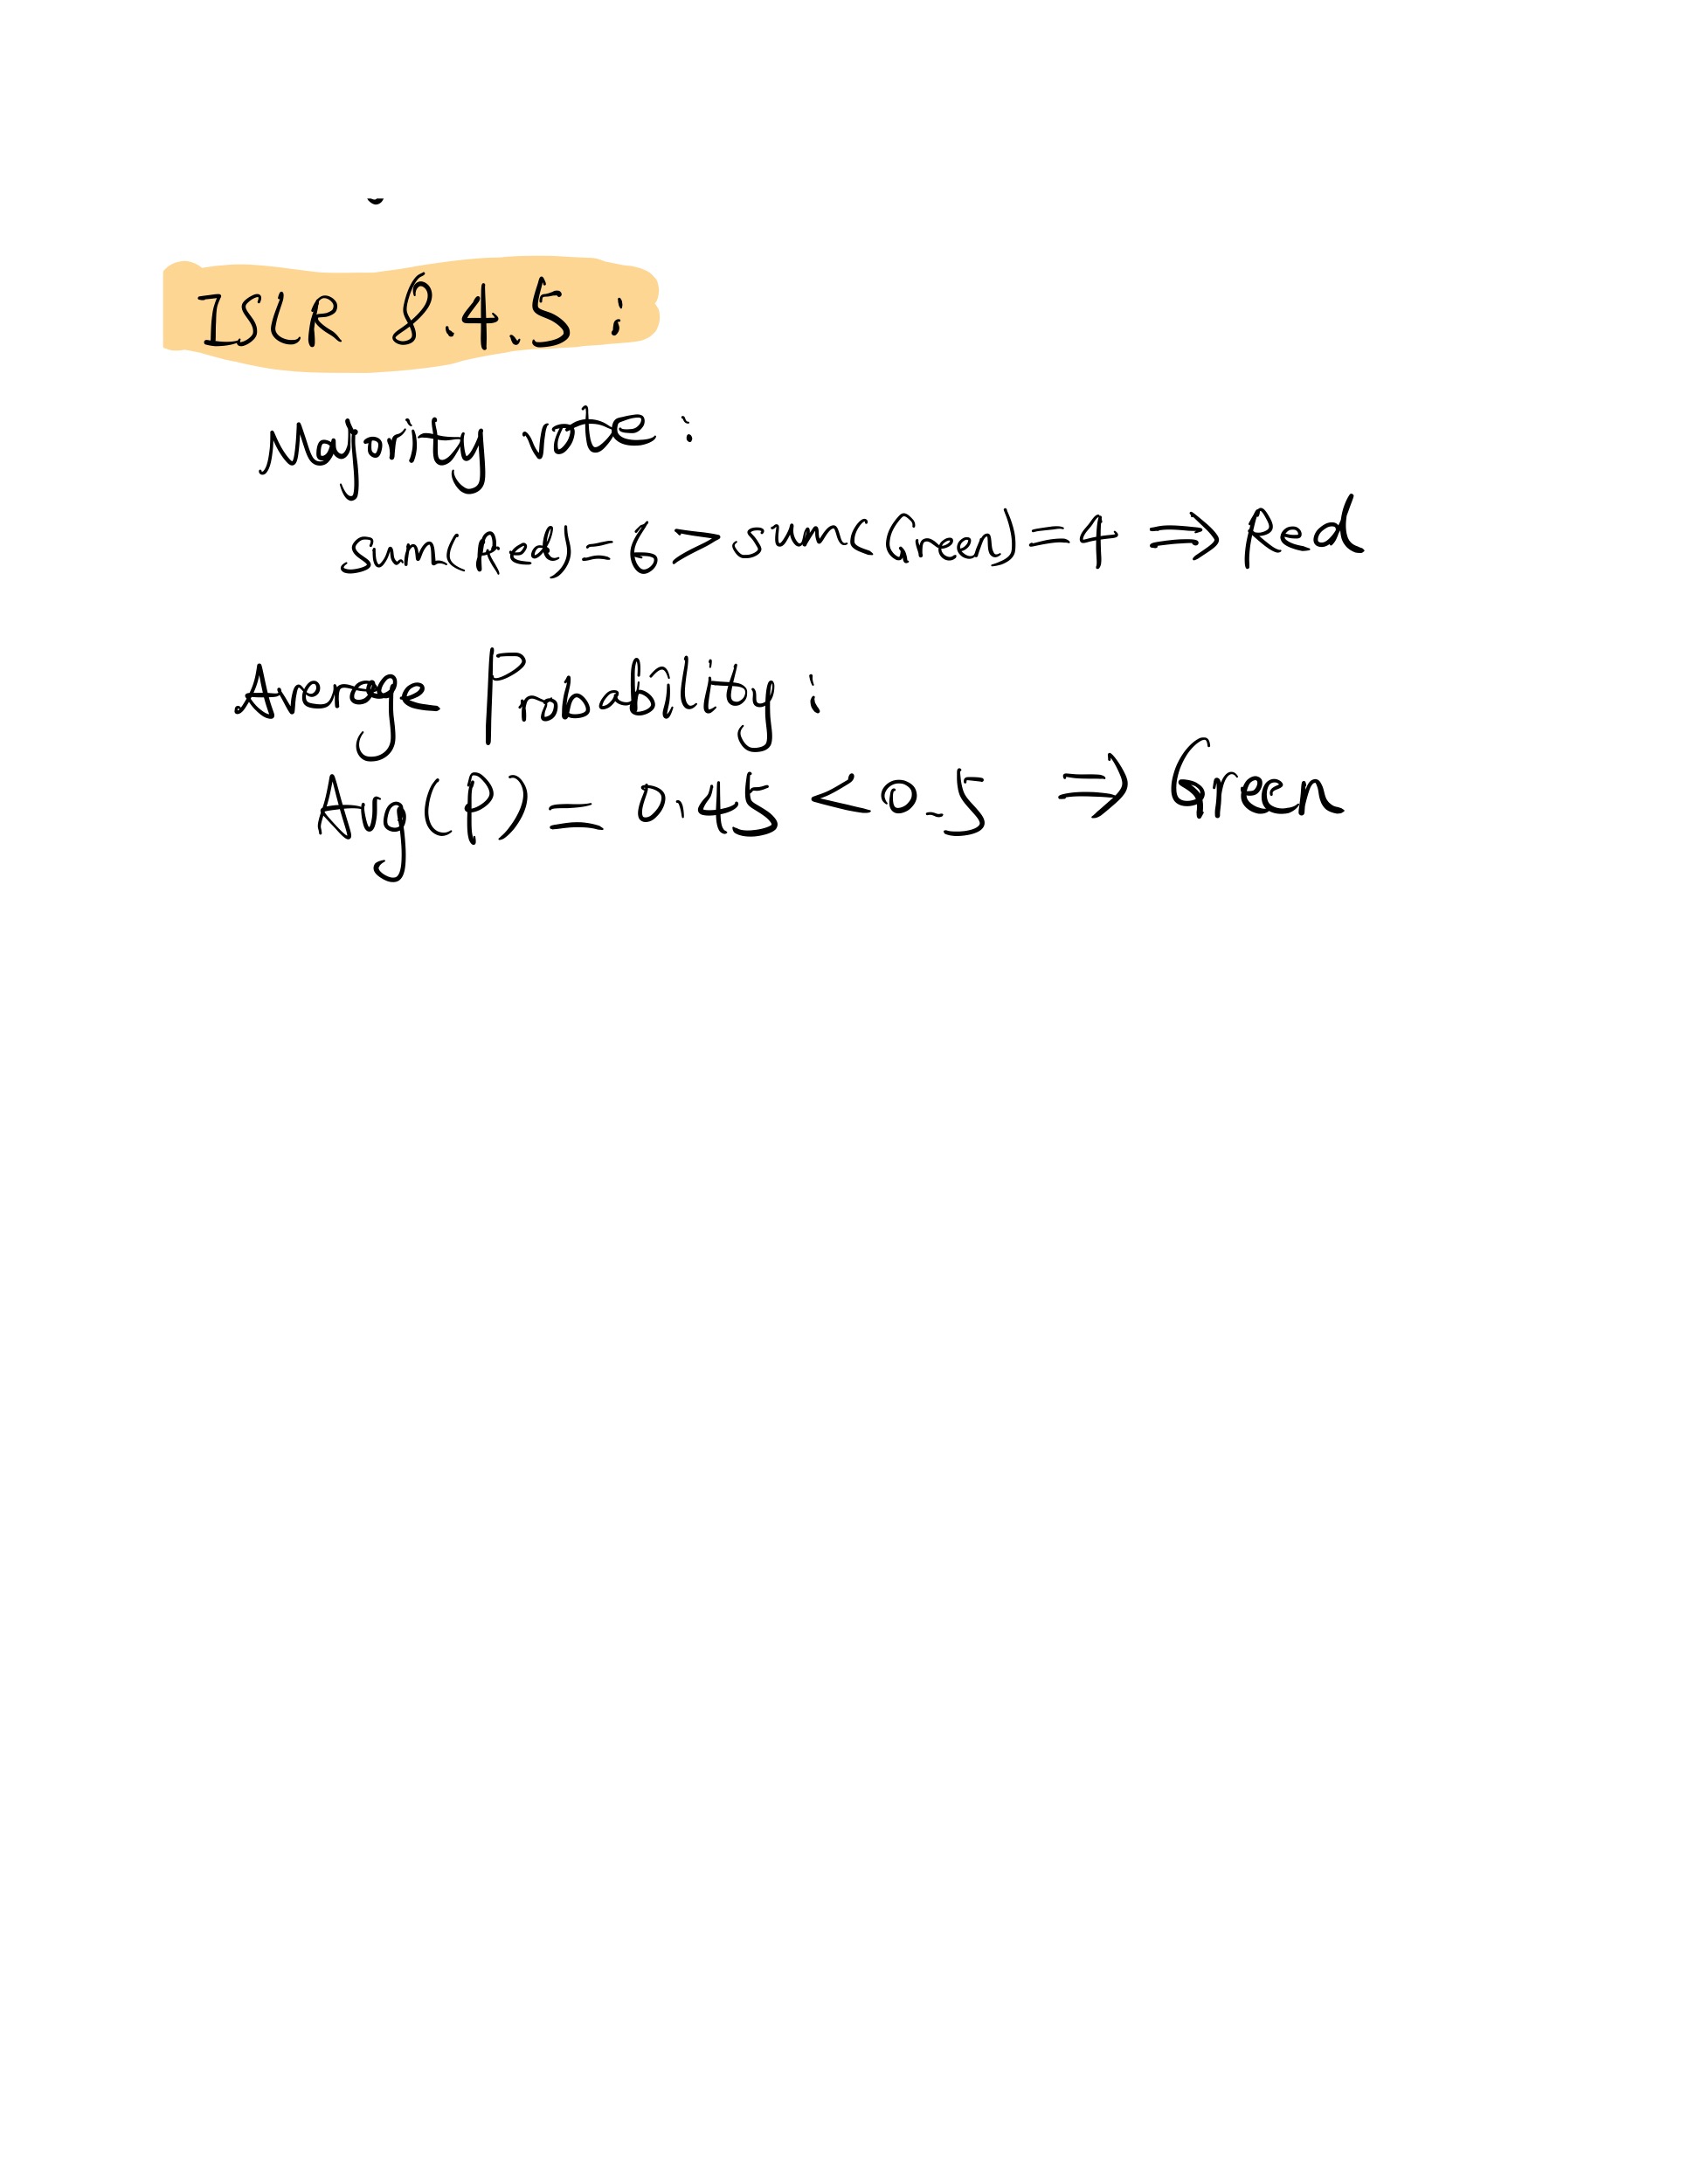 ISLR 8.4.5 :
Majority rate :
sum(Red)=6 > sum(Green)=4 ⇒ Red
Average Probability :
Avg(P) = 0.45 < 0.5 ⇒ Green